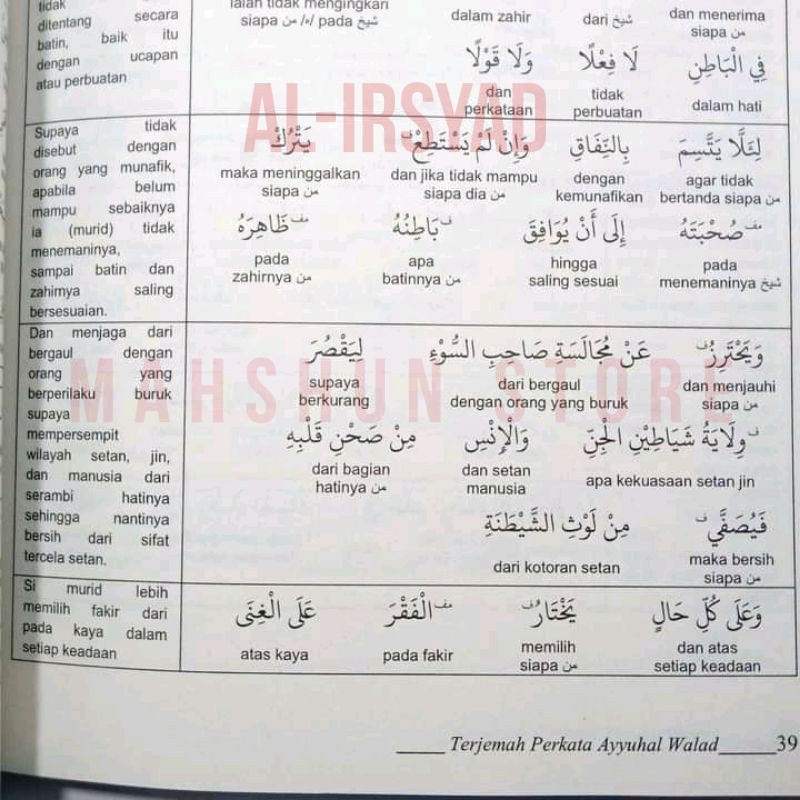 tidak
ditentang secara
batin, baik itu
dengan ucapan
atau perbuatan
ialah tidak mengingkari
siapa من /ه/ pada شيخ
dalam zahir
dari شيخ
dan menerima
siapa من
فِي الْبَاطِنِ لَا فِعْلًا وَلَا قَوْلًا
dalam hati
tidak
perbuatan
dan
perkataan
AL-IRSYAD
Supaya tidak
disebut dengan
orang yang munafik,
apabila belum
mampu sebaiknya
ia (murid) tidak
menemaninya,
sampai batin dan
zahirnya saling
bersesuaian.
لِئَلَّا يَتَّسِمَ بِالنِّفَاقِ وَإِنْ لَمْ يَسْتَطِعْ ف يَتْرُكْ
agar tidak
bertanda siapa من
dengan
kemunafikan
dan jika tidak mampu
siapa dia من
maka meninggalkan
siapa من
مف صُحْبَتَهُ إِلَى أَنْ يُوَافِقَ ف بَاطِنُهُ مف ظَاهِرَهُ
pada
menemaninya شيخ
hingga
saling sesuai
apa
batinnya من
pada
zahirnya من
Dan menjaga dari
bergaul dengan
orang yang
berperilaku buruk
supaya
mempersempit
wilayah setan, jin,
dan manusia dari
serambi hatinya
sehingga nantinya
bersih dari sifat
tercela setan.
وَيَحْتَرِزُ ف عَنْ مُجَالَسَةِ صَاحِبِ السُّوْءِ لِيَقْصُرَ
dan menjauhi
siapa من
dari bergaul
dengan orang yang buruk
supaya
berkurang
MAHSHUN STORE
ف وِلَايَةُ شَيَاطِيْنِ الْجِنِّ وَالْإِنْسِ مِنْ صَحْنِ قَلْبِهِ
apa kekuasaan setan jin
dan setan
manusia
dari bagian
hatinya من
فَيُصَفَّي ف مِنْ لَوْثِ الشَّيْطَنَةِ
maka bersih
siapa من
dari kotoran setan
Si murid lebih
memilih fakir dari
pada kaya dalam
setiap keadaan
وَعَلَى كُلِّ حَالٍ يَخْتَارُ ف مف الْفَقْرَ عَلَى الْغِنَى
dan atas
setiap keadaan
memilih
siapa من
pada fakir
atas kaya
_____ Terjemah Perkata Ayyuhal Walad______39